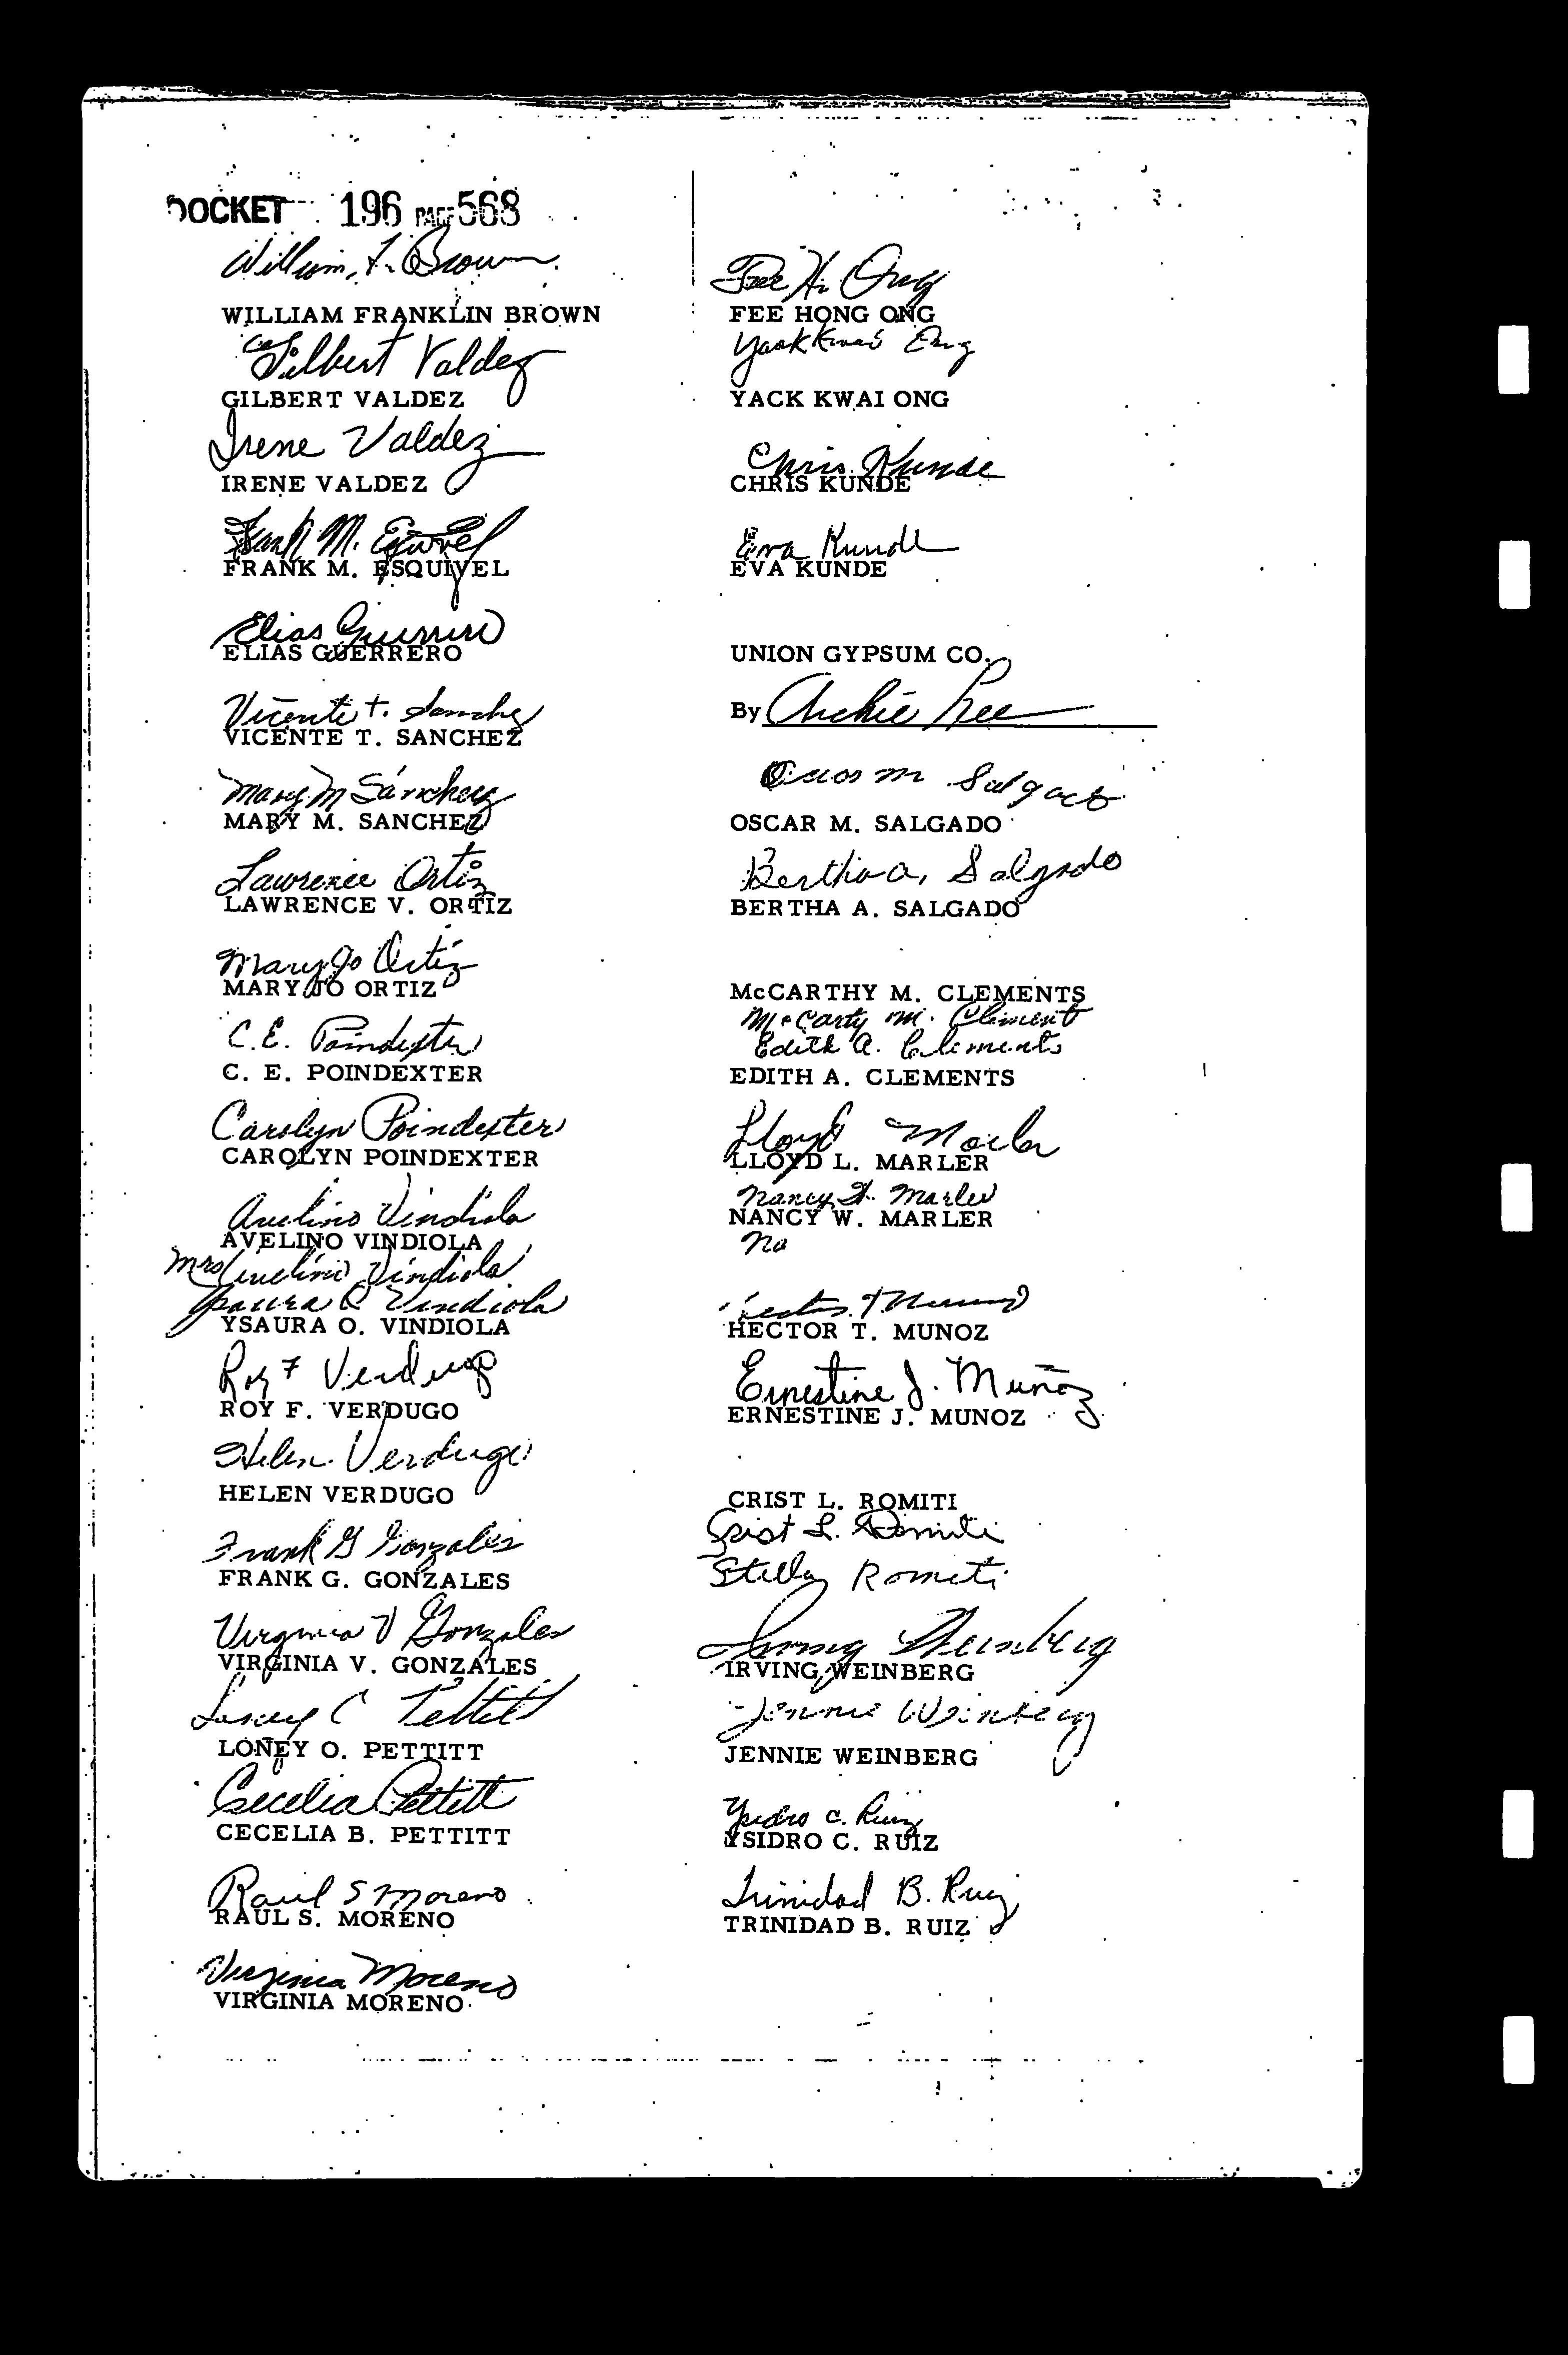 DOCKET 196 PAGE 568
William F. Brown
WILLIAM FRANKLIN BROWN
Gilbert Valdez
GILBERT VALDEZ
Irene Valdez
IRENE VALDEZ
Frank M. Esquivel
FRANK M. ESQUIVEL
Elias Guerrero
ELIAS GUERRERO
Vicente t. Sanchez
VICENTE T. SANCHEZ
Mary M Sánchez
MARY M. SANCHEZ
Lawrence Ortiz
LAWRENCE V. ORTIZ
Mary Jo Ortiz
MARY JO ORTIZ
C.E. Poindexter
C. E. POINDEXTER
Carolyn Poindexter
CAROLYN POINDEXTER
Avelino Vindiola
AVELINO VINDIOLA
Mrs Avelino Vindiola
Ysaura O Vindiola
YSAURA O. VINDIOLA
Roy F Verdugo
ROY F. VERDUGO
Helen Verdugo
HELEN VERDUGO
Frank G Gonzales
FRANK G. GONZALES
Virginia V Gonzales
VIRGINIA V. GONZALES
Loney Pettitt
LONEY O. PETTITT
Cecelia Pettitt
CECELIA B. PETTITT
Raul S Moreno
RAUL S. MORENO
Virginia Moreno
VIRGINIA MORENO
Fee H. Ong
FEE HONG ONG
Yack Kwai Ong
YACK KWAI ONG
Chris Kunde
CHRIS KUNDE
Eva Kunde
EVA KUNDE
UNION GYPSUM CO.
By Archie
Oscar M Salgado
OSCAR M. SALGADO
Bertha A. Salgado
BERTHA A. SALGADO
McCARTHY M. CLEMENTS
McCarty M. Clement
Edith A. Clements
EDITH A. CLEMENTS
Lloyd Marler
LLOYD L. MARLER
Nancy W. Marler
NANCY W. MARLER
Na
Hector T Munoz
HECTOR T. MUNOZ
Ernestine J. Muñoz
ERNESTINE J. MUNOZ
CRIST L. ROMITI
Crist L. Romiti
Stella Romiti
Irving Weinberg
IRVING WEINBERG
Jennie Weinberg
JENNIE WEINBERG
Ysidro C. Ruiz
YSIDRO C. RUIZ
Trinidad B. Ruiz
TRINIDAD B. RUIZ